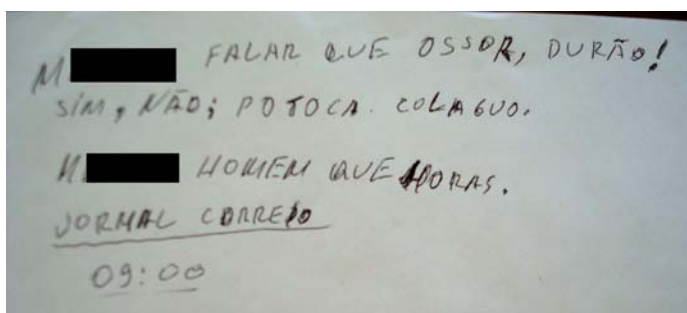 M FALAR QUE OSSOR, DURÃO!
SIM, NÃO; POTOCA. COLAGUO.
M HOMEM QUE HORAS.
JORMAL CORREIO
09:00